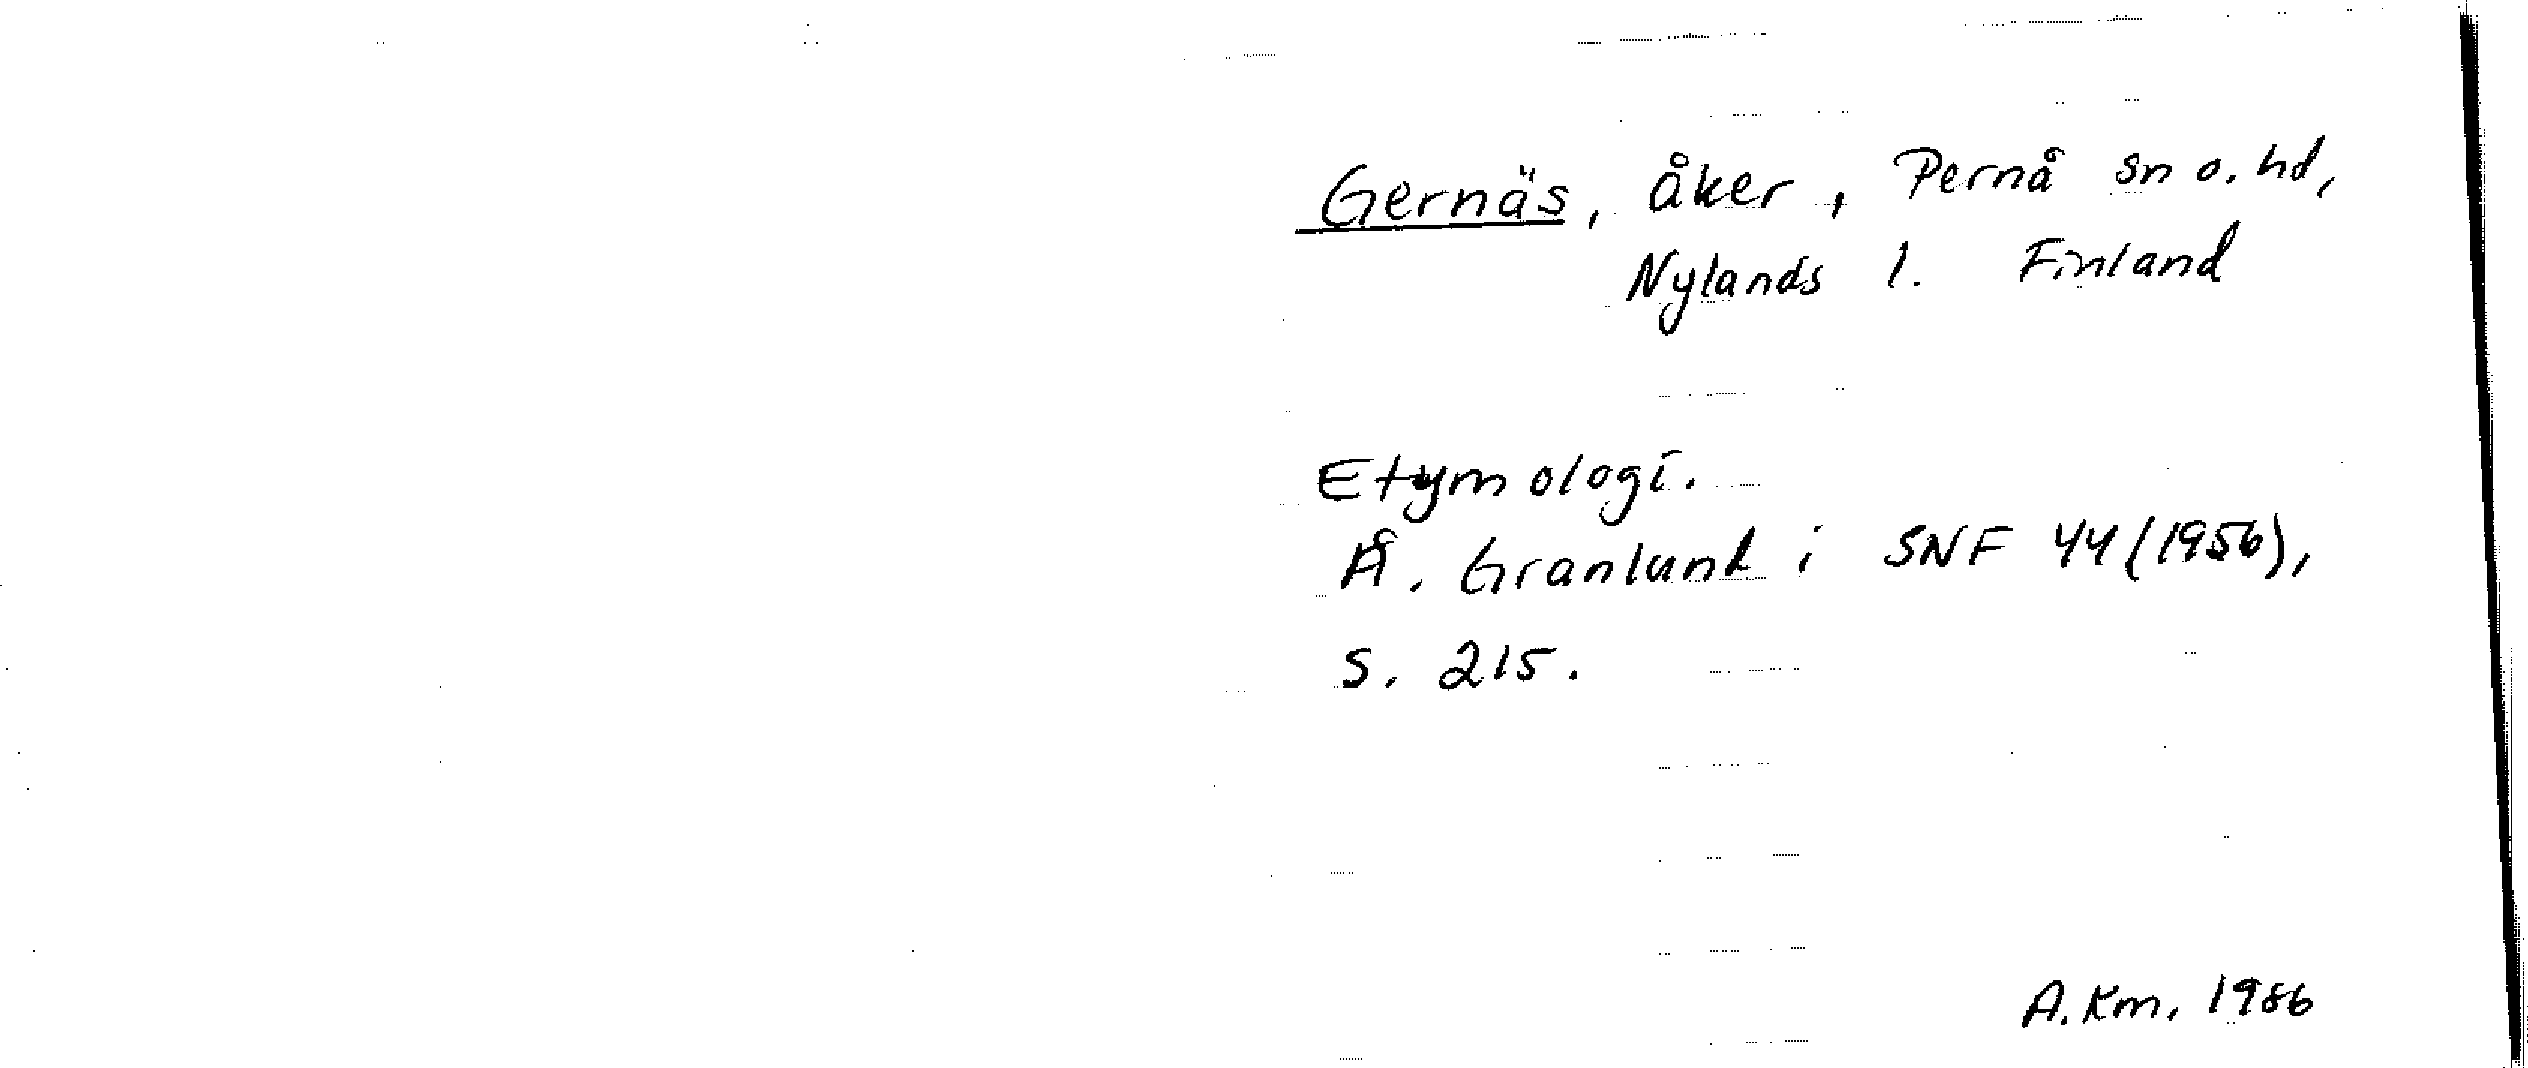 Gernäs, åker, Pernå sn o. hd,
Nylands l. Finland
Etymologi.
Å. Granlund i SNF 44 (1956),
s. 215.
A. Km, 1986